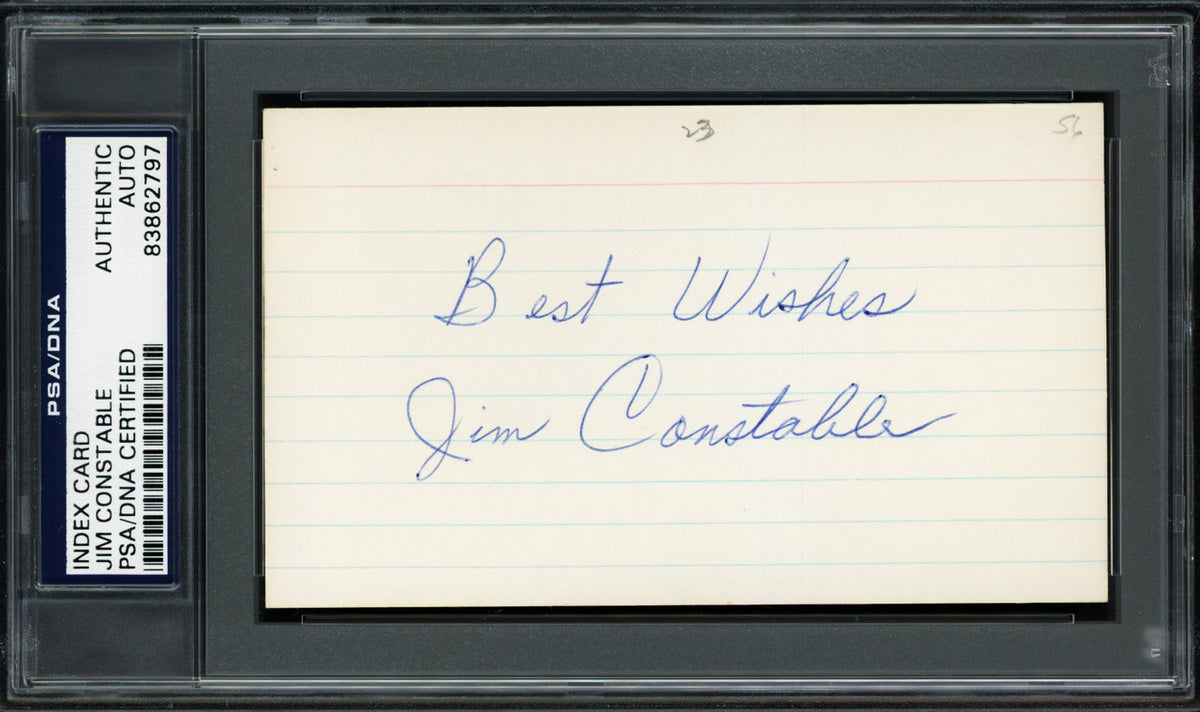 PSA/DNA
INDEX CARD
JIM CONSTABLE
PSA/DNA CERTIFIED
AUTHENTIC
AUTO
83862797
23
56
Best Wishes
Jim Constable